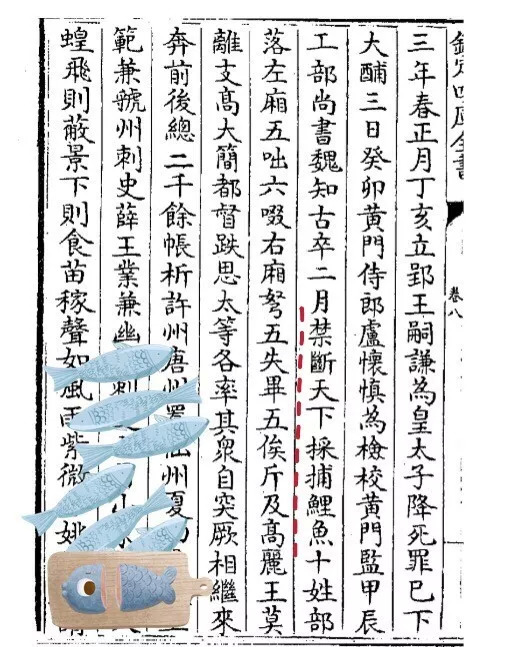 欽定四庫全書
卷八
三年春正月丁亥立郢王嗣謙為皇太子降死罪已下
大酺三日癸卯黄門侍郎盧懷慎為檢校黄門監甲辰
工部尚書魏知古卒二月禁斷天下採捕鯉魚十姓部
落左廂五咄六啜右廂弩五失畢五俟斤及高麗王莫
離支高大簡都督跌思太等各率其衆自突厥相繼來
奔前後總二千餘帳析許州唐州置仙州夏
範兼虢州刺史薛王業兼幽刺
蝗飛則蔽景下則食苗稼聲如風雨紫微姚